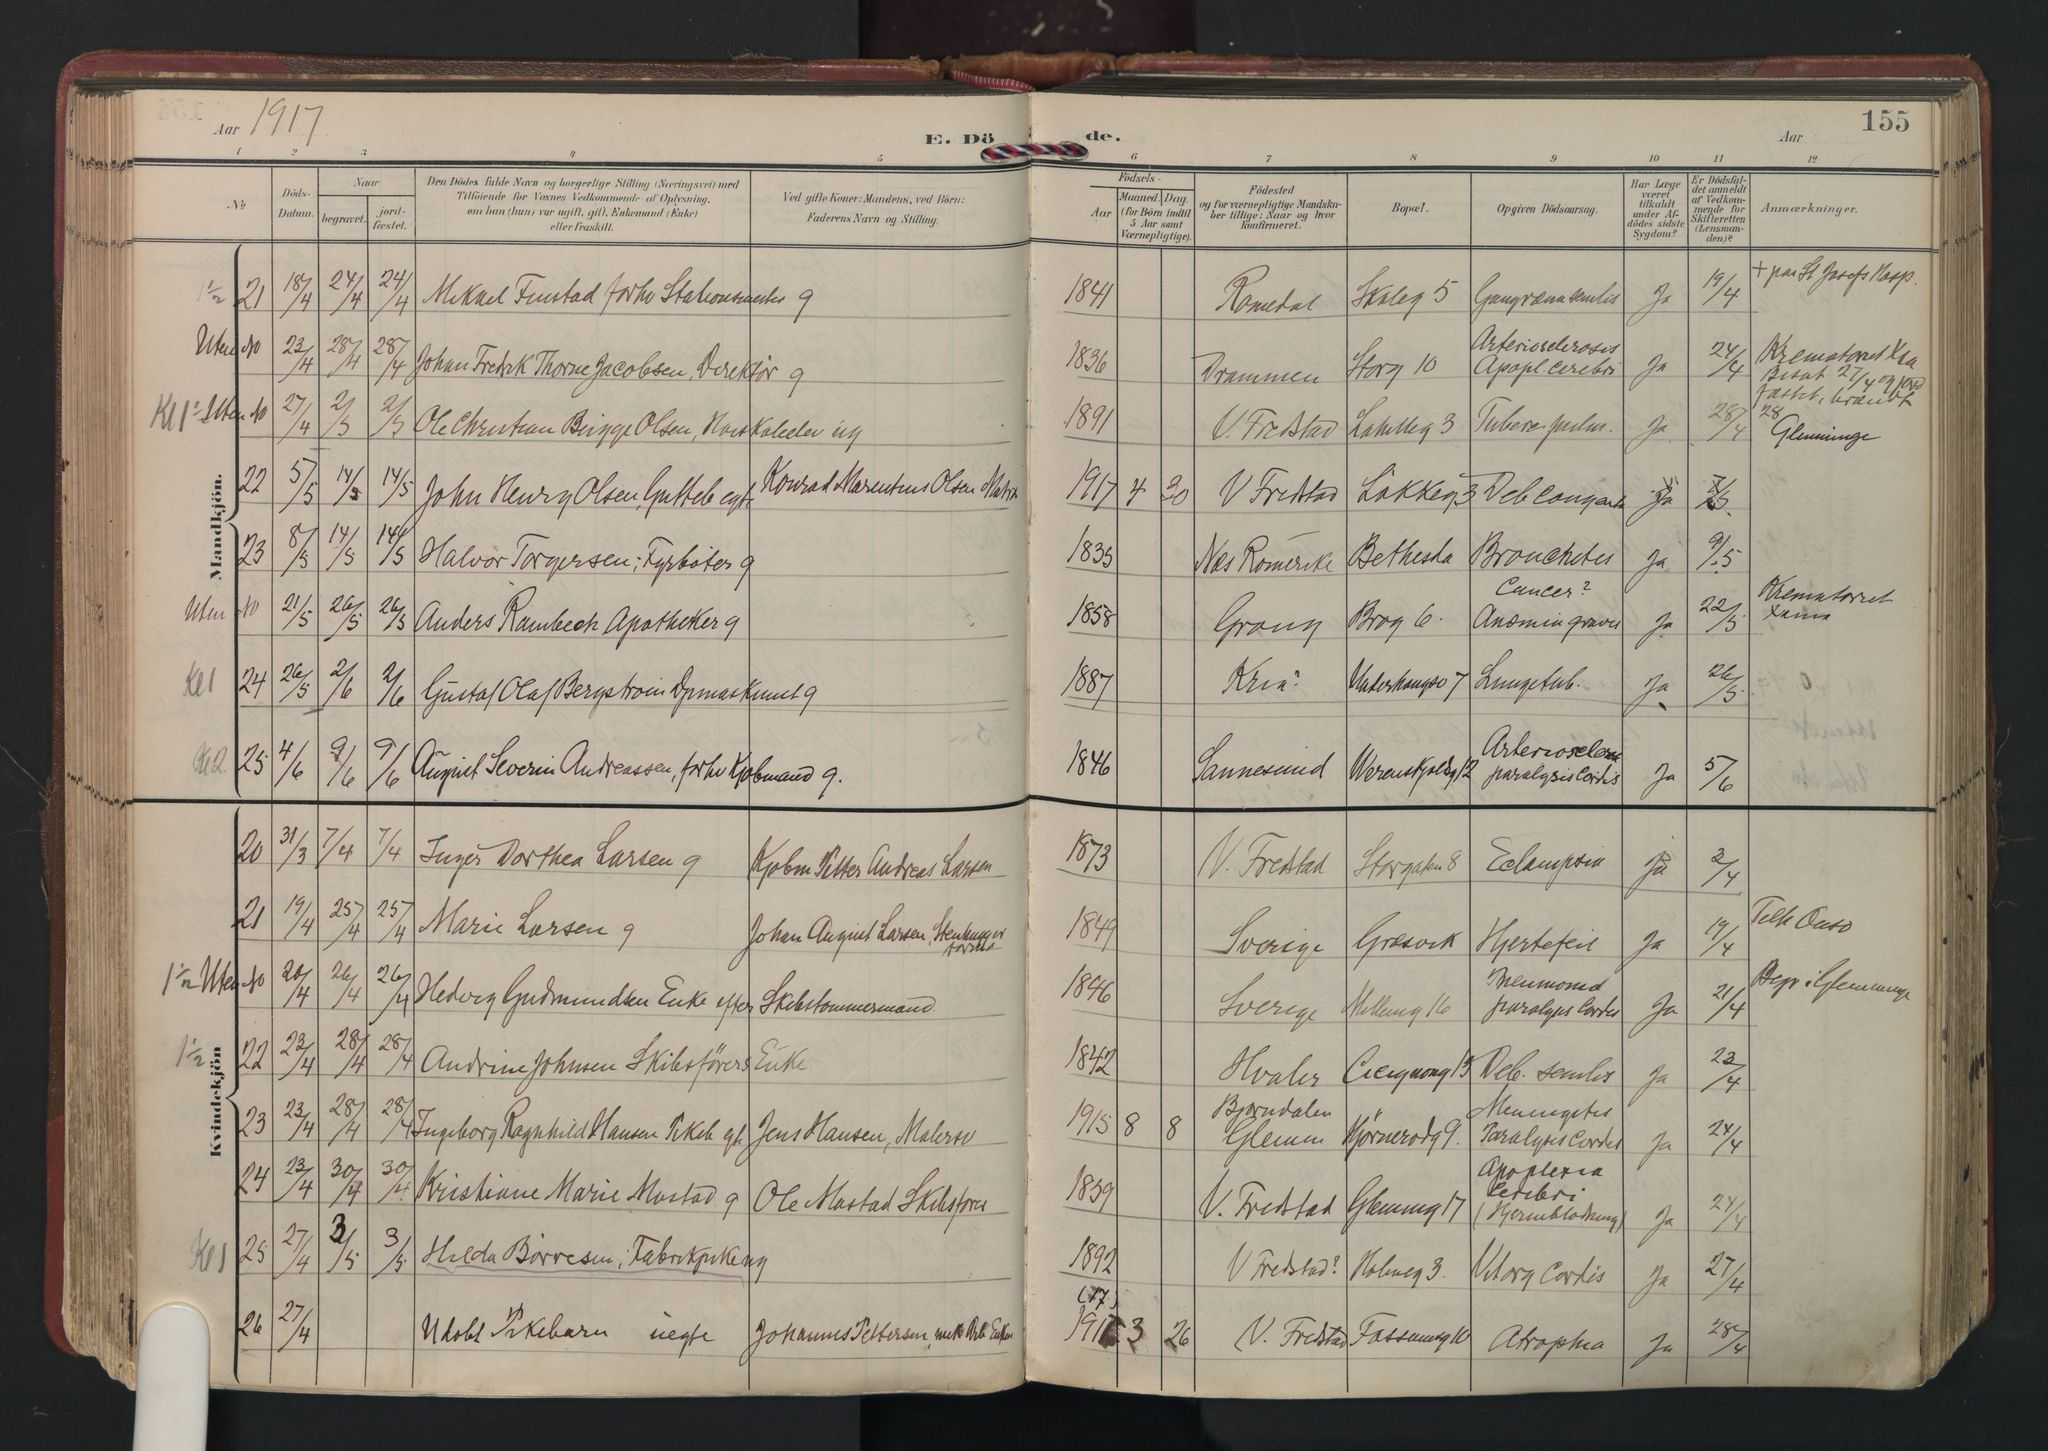 155
Aar 1917
E. Dö de.
Aar
1 2 3 4 5 6 7 8 9 10 11 12
No
Döds-Datum.
Naar
begravet.
jord-fæstet.
Den Dödes fulde Navn og borgerlige Stilling (Næringsvei) med
Tilföiende for Voxnes Vedkommende af Oplysning,
om han (hun) var ugift, gift, Enkemand (Enke)
eller fraskilt.
Ved gifte Koner: Mandens, ved Börn:
Faderens Navn og Stilling.
Födsels-
Aar
Maaned. Dag.
(for Börn indtil
5 Aar samt
Værnepligtige).
Födested
og for værnepligtige Mandska-
ber tillige: Naar og hvor
konfirmeret.
Bopæl.
Opgiven Dödsaarsag.
Har Læge
været
tilkaldt
under Af-
dödes sidste
Sygdom?
Er Dödsfal-
det anmeldt
af Vedkom-
mende for
Skifteretten
(Lensman-
den)?
Anmærkninger.
Mandkjön.
1 1/2 21 18/4 24/4 24/4 Mikael Finstad forhv Stationsmester g 1841 Romedal Skoleg 5 Gangræna senilis Ja 19/4 + paa St Josefs Hosp.
Uten No 23/4 28/4 28/4 Johan Fredrik Thorne Jacobsen, Direktør g 1836 Drammen Storg 10 Arteriosclerosis Apopl. cerebri Ja 24/4 Krematoriet Kra Bisat 27/4 og jord fæstet, brændt 28
Kl 1 Uten No 27/4 2/5 2/5 Ole Christian Bugge Olsen, ug 1891 V. Fredstad 3 Tuberc. pulm. Ja 28/4 Glemminge
22 5/5 14/5 14/5 John Henry Olsen, Gutteb egte Konrad Marentius Olsen 1917 4 30 V Fredstad Løkkeg 3 Deb congenita Ja
23 8/5 14/5 14/5 Halvor Torgersen, Fyrbøter g 1835 Næs Romerike Bethesda Bronchitis Ja 9/5
Uten No 21/5 26/5 26/5 Anders Rambech Apotheker g 1858 Grong Brog 6. Cancer? Anæmia gravis Ja 22/5 Krematoriet
Kl 1 24 26/5 2/6 2/6 Gustaf Olaf Bergstrøm g 1887 Kria 7 Lungetub. Ja 26/5
Kl 2 25 4/6 9/6 9/6 August Severin Andreassen, forhv Kjøbmand g. 1846 Sannesund Werenskjoldg 12 Arteriosclerose paralysis Cordis Ja 5/6
Kvindekjön
20 31/3 7/4 7/4 Inger Dorthea Larsen g Kjøbm Petter Andreas Larsen 1873 V. Fredstad Storgaten 8 Eclampsia Ja 2/4
21 19/4 25/4 25/4 Marie Larsen g Johan August Larsen, Stenhugger 1849 Sverige Græsvik Hjertefeil Ja 19/4 Onsø
1 1/2 Uten No 20/4 26/4 26/4 Hedvig Gudmundsen Enke efter Skibstømmermand 1846 Sverige 16 Pneumonia paralysis Cordis Ja 21/4 Begr. i Glemminge
1 1/2 22 23/4 28/4 28/4 Andrine Johnsen Skibsførers Enke 1842 Hvaler Cicignong 15 Deb. senilis Ja 23/4
23 23/4 28/4 28/4 Ingeborg Ragnhild Hansen Pikeb egte Jens Hansen, Malersv 1915 8 8 Bjørndalen Glemm Kjørnerødg 9. Meningitis Paralysis Cordis Ja 24/4
24 23/4 30/4 30/4 Kristiane Marie Mostad g Ole Mostad Skibsfører 1839 V. Fredstad Glemmg 17 Apoplexia cerebri (Hjerneblødning) Ja 24/4
Kl 1 25 27/4 3/5 3/5 Hilda Børresen, Fabrikpike ug 1892 V Fredstad? Holmeg 3. Vit. org Cordis Ja 27/4
26 27/4 Udøbt Pikebarn uegte Johannes Pettersen, 1917 (17) 3 26 V. Fredstad 10 Atrophia Ja 28/4